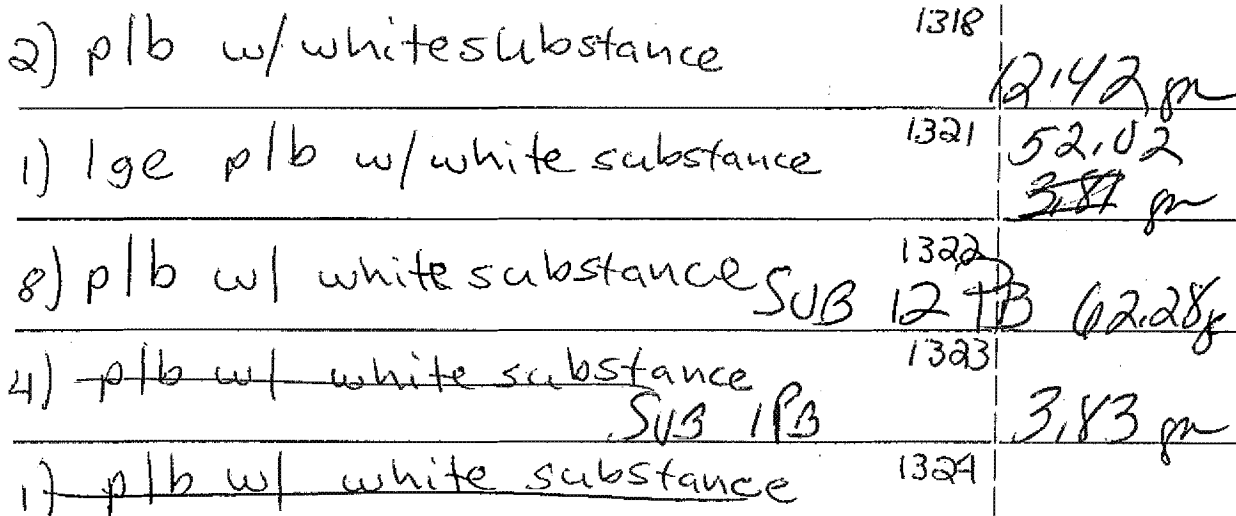 2) p/b w/ white substance 1318 12.42 gm
1) lge p/b w/ white substance 1321 52.02
3.87 gm
8) p/b w/ white substance 1322
SUB 12 PB 62.28g
4) p/b w/ white substance 1323
SUB 1 PB 3.83 gm
1) p/b w/ white substance 1324